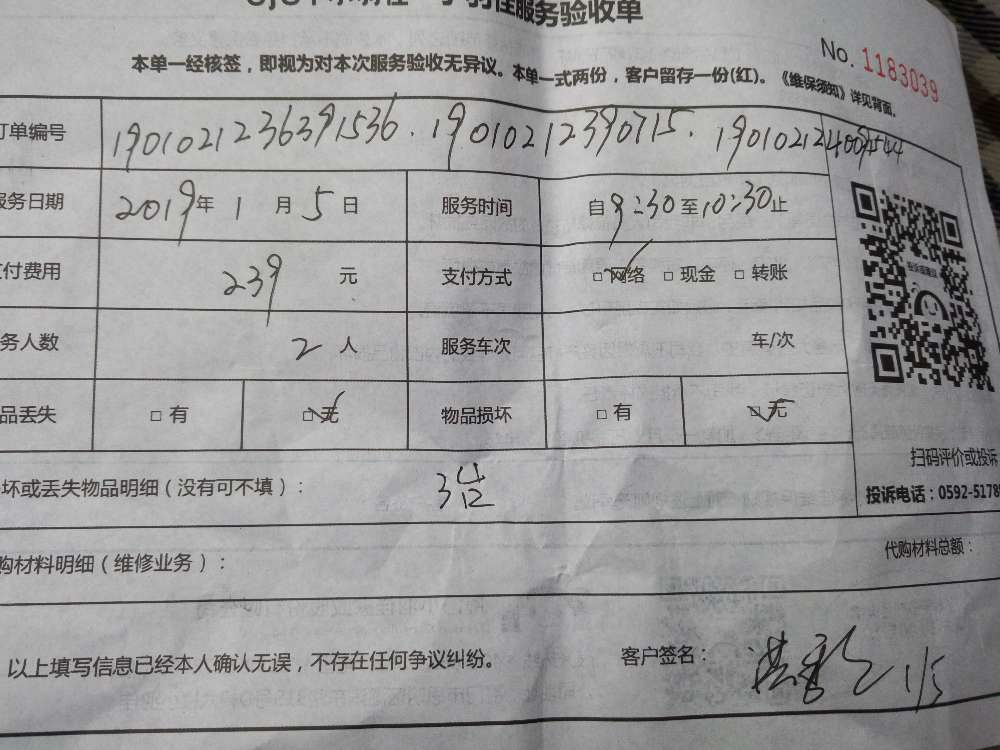 服务验收单
No. 1183039
本单一经核签，即视为对本次服务验收无异议。本单一式两份，客户留存一份(红)。《维保须知》详见背面。
订单编号 1901021236391536. 19010212390715.
服务日期 2019年 1 月 5 日 服务时间 自 9:30 至 10:30 止
支付费用 239 元 支付方式 □ 网络 □ 现金 □ 转账
务人数 2 人 服务车次 车/次
品丢失 □ 有 □ 无 物品损坏 □ 有 □ 无
坏或丢失物品明细（没有可不填）： 3台
扫码评价或投诉
投诉电话：0592-5178
购材料明细（维修业务）： 代购材料总额：
以上填写信息已经本人确认无误，不存在任何争议纠纷。 客户签名： 1/5